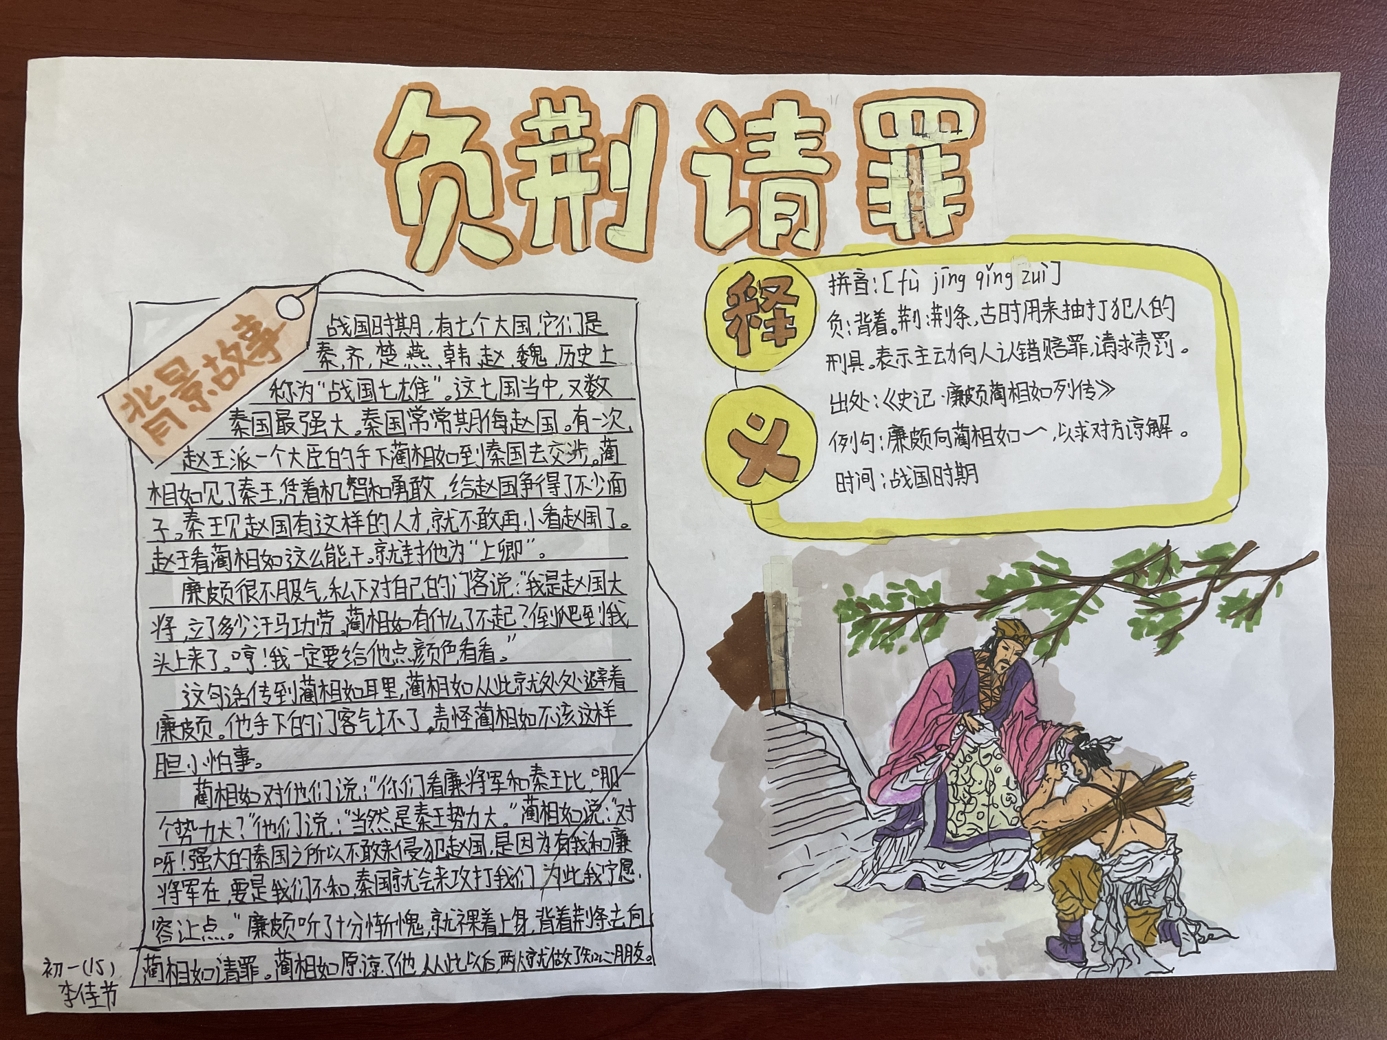 负荆请罪
背景故事
战国时期，有七个大国，它们是
秦、齐、楚、燕、韩、赵、魏，历史上
称为“战国七雄”。这七国当中，又数
秦国最强大。秦国常常期侮赵国。有一次，
赵王派一个大臣的手下蔺相如到秦国去交涉。蔺
相如见了秦王，凭着机智和勇敢，给赵国争得了不少面
子。秦王见赵国有这样的人才，就不敢再小看赵国了。
赵王看蔺相如这么能干。就封他为“上卿”。
廉颇很不服气，私下对自己的门客说：“我是赵国大
将，立了多少汗马功劳。蔺相如有什么了不起？倒爬到我
头上来了。哼！我一定要给他点颜色看看。”
这句话传到蔺相如耳里，蔺相如从此就处处避着
廉颇。他手下的门客气坏了，责怪蔺相如不该这样
胆小怕事。
蔺相如对他们说：“你们看廉将军和秦王比，哪一
个势力大？”他们说：“当然是秦王势力大。”蔺相如说：“对
呀！强大的秦国之所以不敢来侵犯赵国，是因为有我和廉
将军在，要是我们不和，秦国就会来攻打我们，为此我宁愿
容让点。”廉颇听了十分惭愧，就裸着上身，背着荆条去向
蔺相如请罪。蔺相如原谅了他，从此以后，两人就做了知心朋友。
释义
拼音：[fù jīng qǐng zuì]
负：背着。荆：荆条，古时用来抽打犯人的
刑具。表示主动向人认错赔罪，请求责罚。
出处：《史记·廉颇蔺相如列传》
例句：廉颇向蔺相如～，以求对方谅解。
时间：战国时期
初一(15)
李佳节